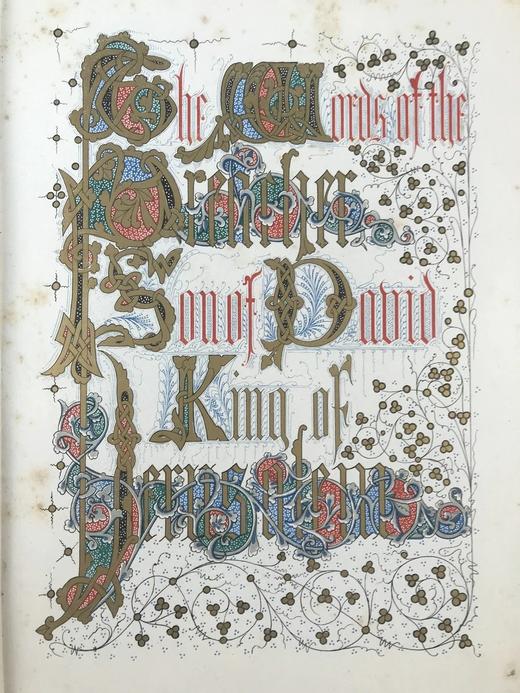 The Words of the
Preacher
Son of David
King of
Jerusalem